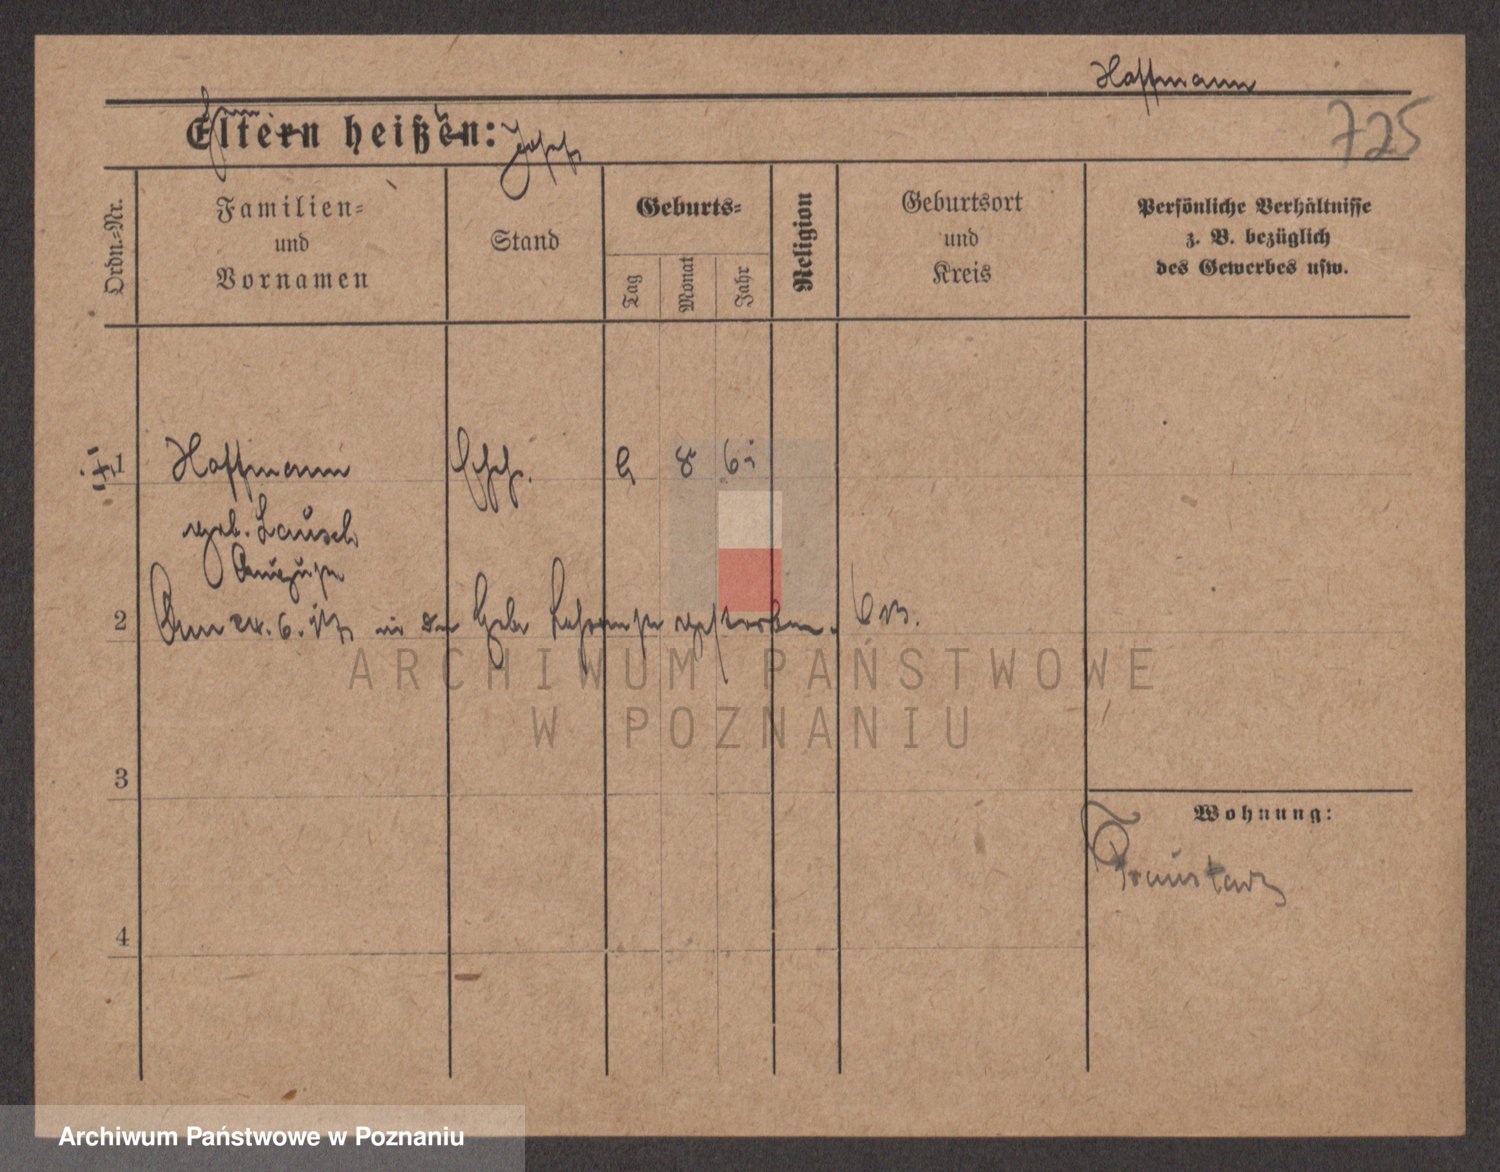 Hoffmann
725
Eltern heißen: Josef
Ordn.-Nr.
Familien-
und
Vornamen
Stand
Geburts-
Tag
Monat
Jahr
Religion
Geburtsort
und
Kreis
Persönliche Verhältnisse
z. B. bezüglich
des Gewerbes usw.
1 Hoffmann Ehefr. 8
geb. Lausch
2 Am 24. 6. in der gestorben.
ARCHIWUM PAŃSTWOWE
W POZNANIU
3
Wohnung:
Fraustadt
4
Archiwum Państwowe w Poznaniu